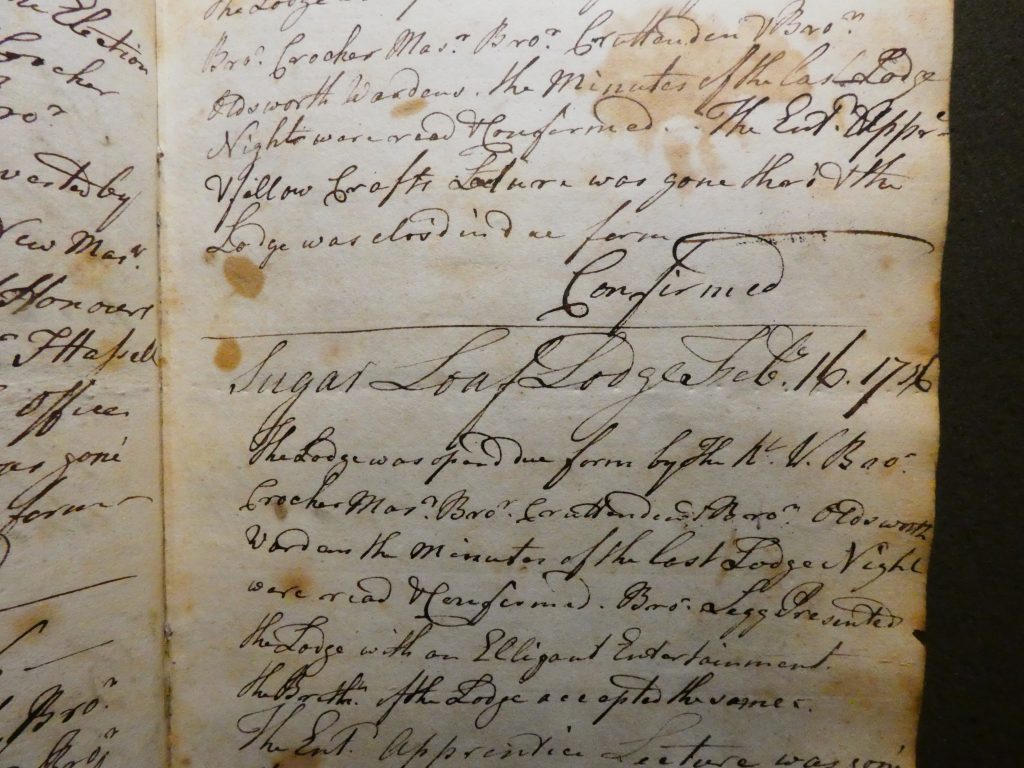 Election
Bro.r
wanted by
New Mas.r
Honours
Office
was gone
form
Bro.r
Bro.r
The Lodge
Bro.r Crocker Mas.r Bro.r Cruttenden & Bro.r
Oldsworth Wardens. the Minutes of the last Lodge
Night were read & Confermed. The Ent.d Appr.
& fellow Crafts Lecture was gone thero' & the
Lodge was clos'd in due form
Confirmed
Sugar Loaf Lodge Feb. 16. 17
The Lodge was open'd due form by The R.t W. Bro.r
Crocker Mas.r Bro.r Cruttenden & Bro.r Oldsworth
Wardens the Minutes of the last Lodge Night
were read & Confermed. Bro.r Legg Presented
the Lodge with an Elligant Entertainment.
the Breth.n of the Lodge accepted the same.
The Ent.d Apprentice Lecture was gone